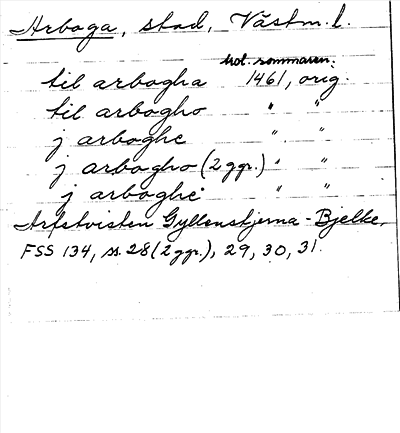 Arboga, stad, Västm. l.
trol. sommaren.
til arbogha 1461, orig.
til arbogho " "
j arboghe " "
j arbogho (2 ggr.) " "
j arboghe " "
Arfstvisten Gyllenstjerna - Bjelke,
FSS 134, ss. 28 (2 ggr.), 29, 30, 31.